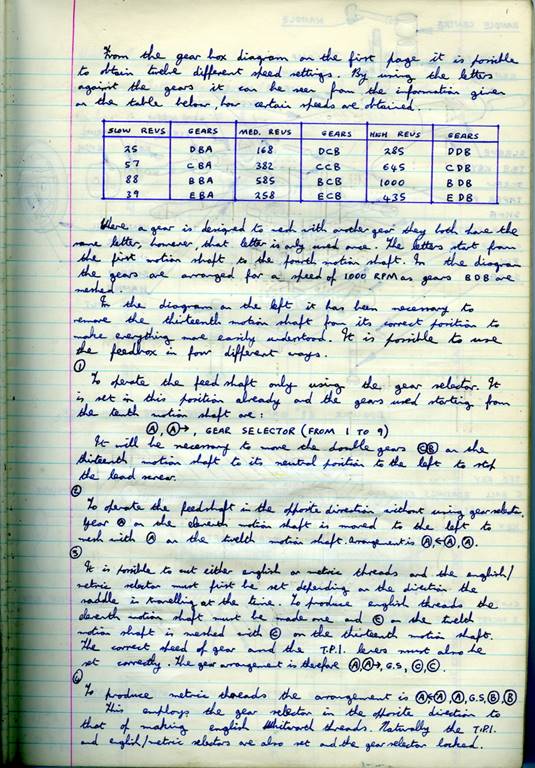 From the gear box diagram on the first page it is possible
to obtain twelve different speed settings. By using the letters
against the gears it can be seen from the information given
on the table below, how certain speeds are obtained.
SLOW REVS GEARS MED. REVS GEARS HIGH REVS GEARS
25 DBA 168 DCB 285 DDB
57 CBA 382 CCB 645 CDB
88 BBA 585 BCB 1000 BDB
39 EBA 258 ECB 435 EDB
Where a gear is designed to mesh with another gear they both have the
same letter, however that letter is only used once. The letters start from
the first motion shaft to the fourth motion shaft. In the diagram
the gears are arranged for a speed of 1000 RPM as gears BDB are
meshed.
In the diagram on the left it has been necessary to
remove the thirteenth motion shaft from its correct position to
make everything more easily understood. It is possible to use
the feedbox in four different ways.
①
To operate the feed shaft only using the gear selector. It
is set in this position already and the gears used starting from
the tenth motion shaft are:
Ⓐ, Ⓐ→, GEAR SELECTOR (FROM 1 TO 9)
It will be necessary to move the double gears ⒸⒷ on the
thirteenth motion shaft to its neutral position to the left to stop
the lead screw.
②
To operate the feedshaft in the opposite direction without using gear selector.
Gear Ⓐ on the eleventh motion shaft is moved to the left to
mesh with Ⓐ on the twelth motion shaft. Arrangement is Ⓐ,←Ⓐ,Ⓐ.
It is possible to cut either english or metric threads and the english/
metric selector must first be set depending on the direction the
saddle is travelling at the time. To produce english threads the
eleventh motion shaft must be made one and Ⓒ on the twelth
motion shaft is meshed with Ⓒ on the thirteenth motion shaft.
The correct speed of gear and the T.P.I. levers must also be
set correctly. The gear arrangement is therefore ⒶⒶ→, G.S, Ⓒ,Ⓒ.
To produce metric threads the arrangement is Ⓐ←Ⓐ,Ⓐ,G.S,Ⓑ,Ⓑ
This employs the gear selector in the opposite direction to
that of making english Whitworth threads. Naturally the T.P.I.
and english/metric selectors are also set and the gear selector locked.